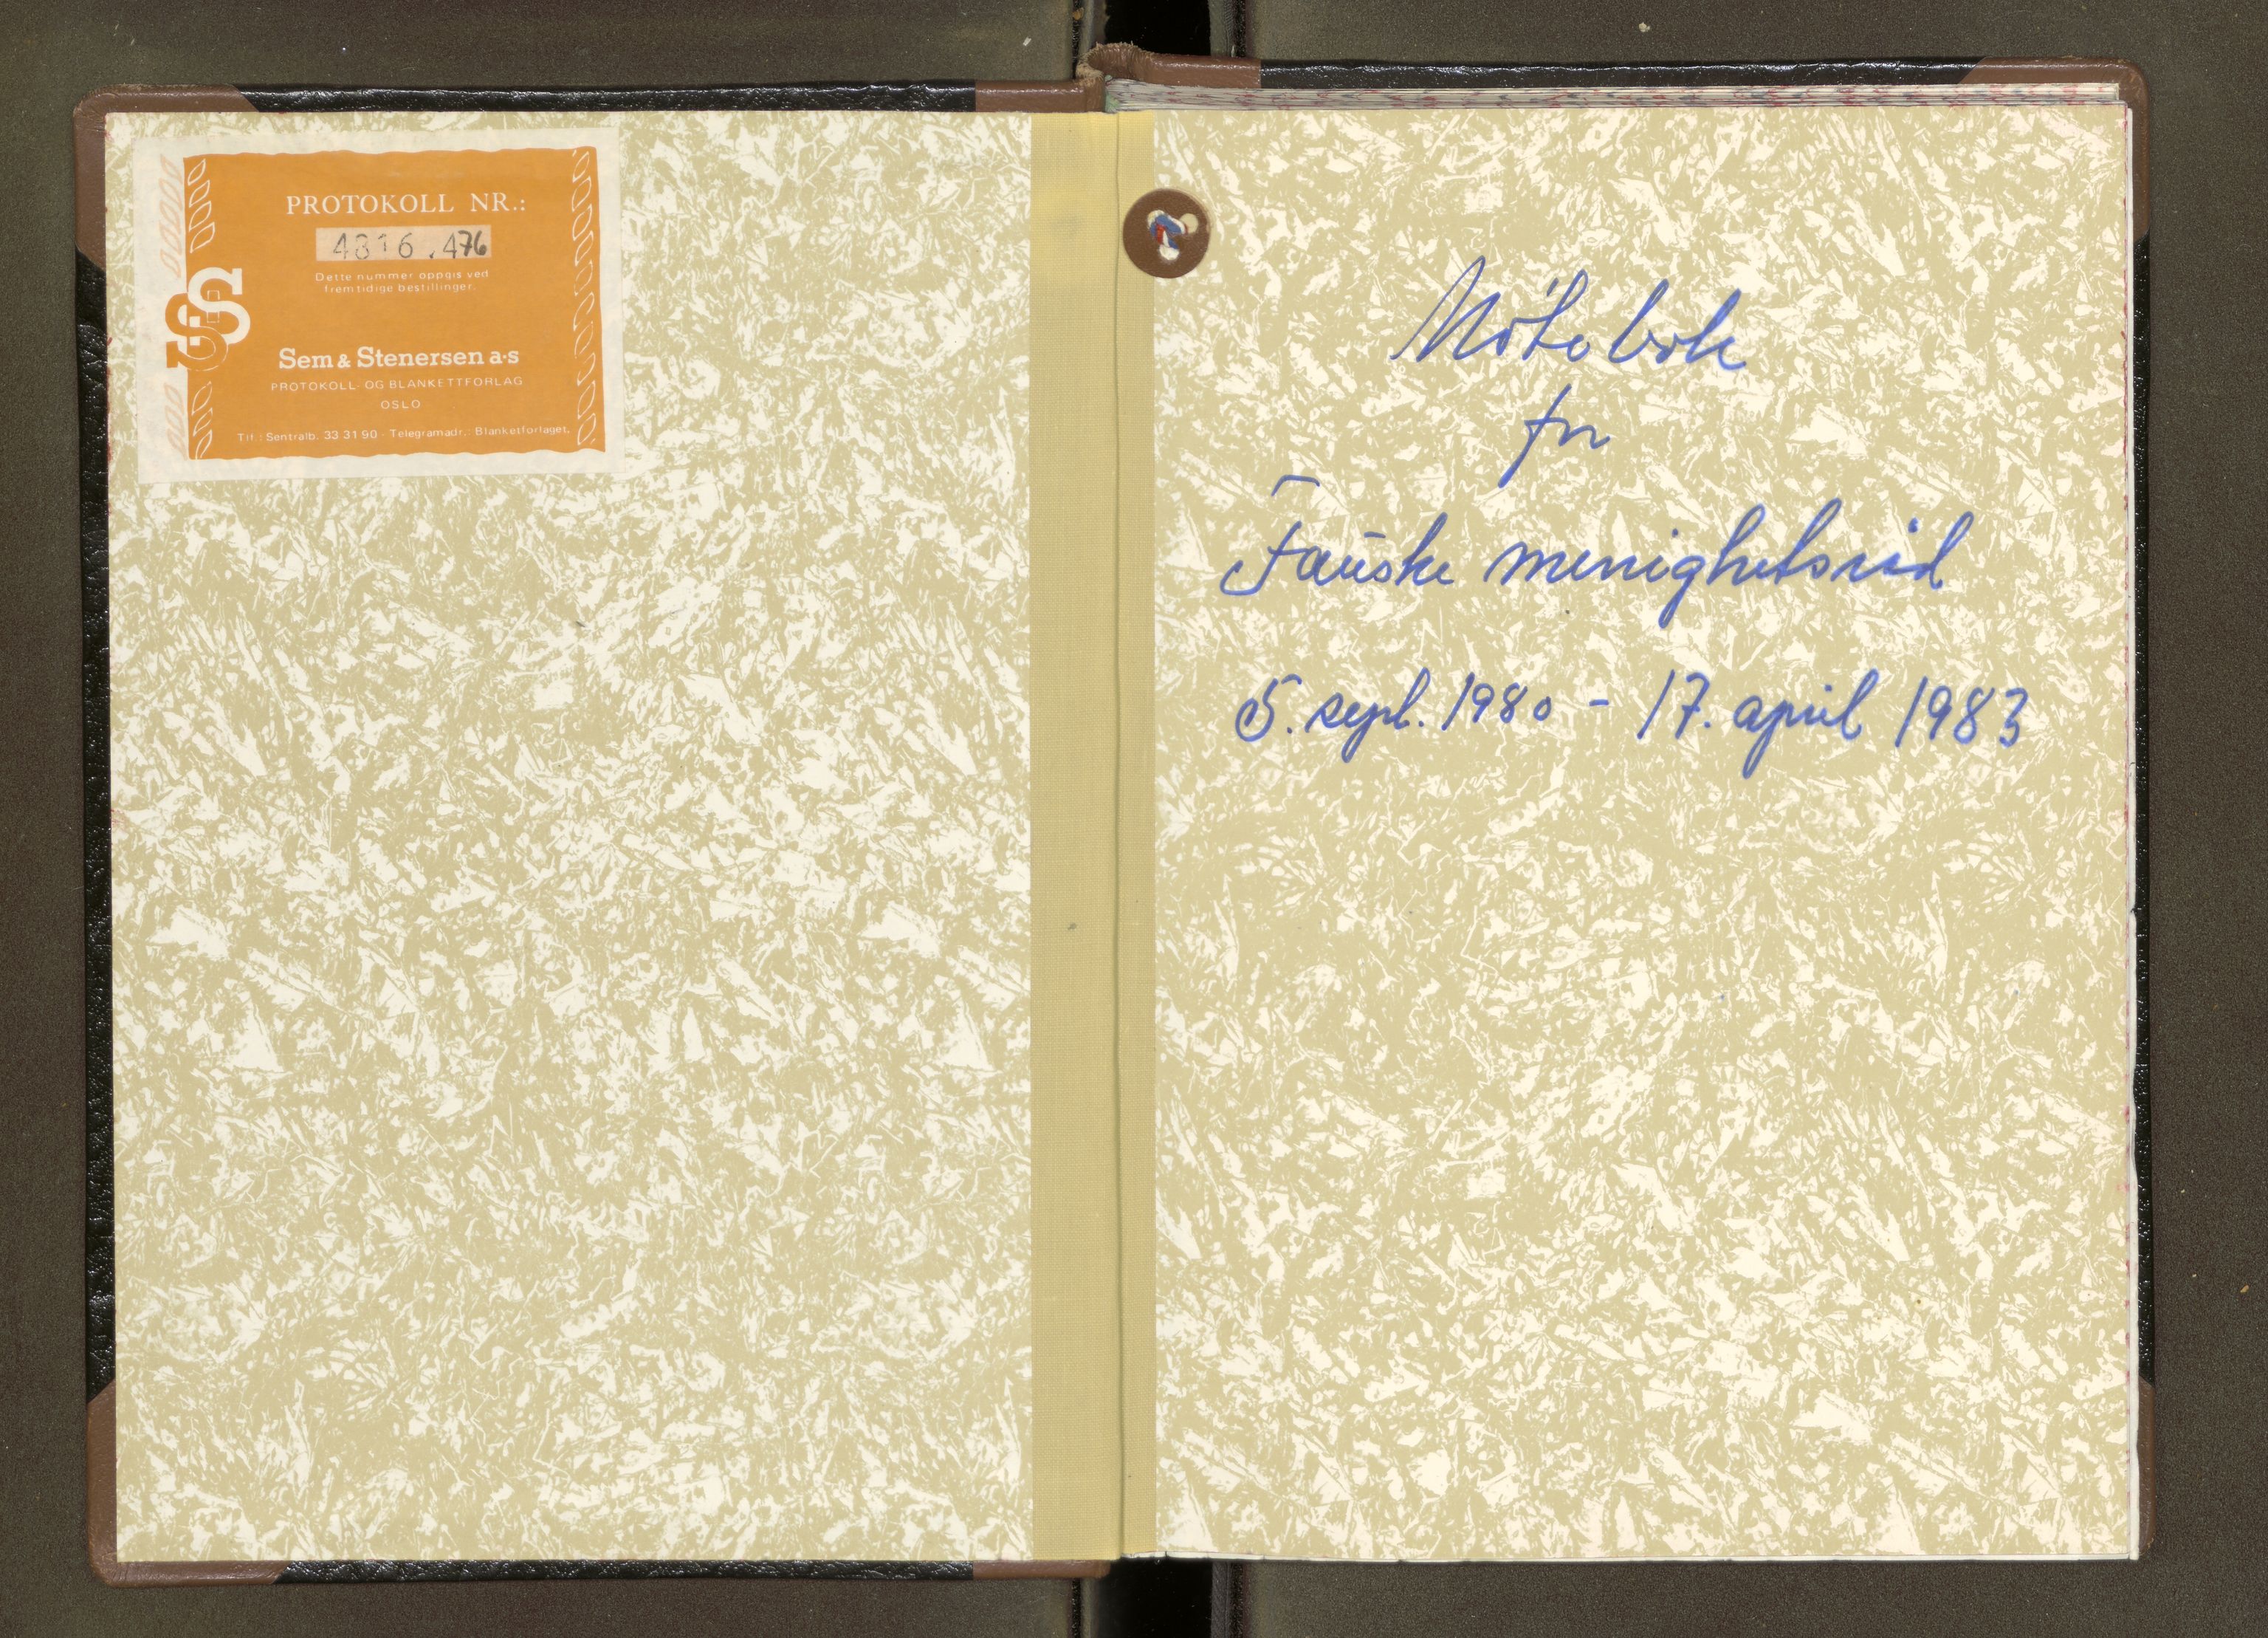 PROTOKOLL NR.:
4816.476
Dette nummer oppgis ved
fremtidige bestillinger.
S&S
Sem & Stenersen a·s
PROTOKOLL- OG BLANKETTFORLAG
OSLO
Tlf.: Sentralb. 33 31 90 - Telegramadr.: Blanketforlaget.
Møtebok
for
Fauske menighetsråd
5. sept. 1980 - 17. april 1983